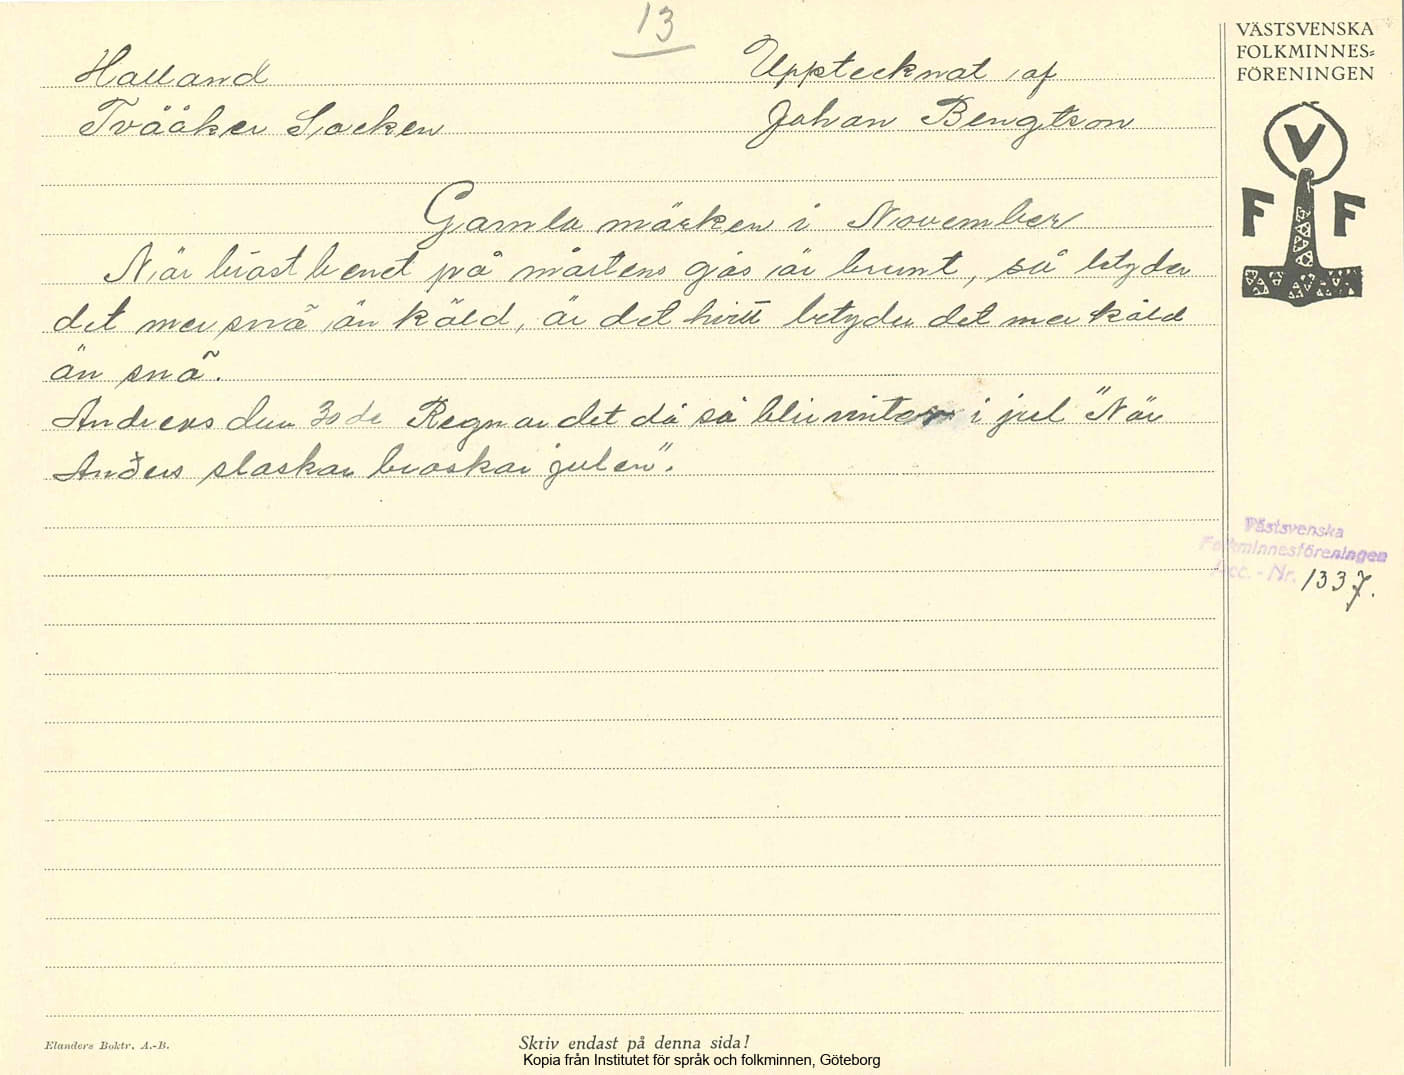 13
Halland
Upptecknat af
Tvååker Socken
Johan Bengtson
Gamla märken i November
När bröstbenet på mårtens gås är brunt, så betyder
det mer snö än köld, är det hvitt betyder det mer köld
än snö.
Andreas den 30de Regnar det då så blir vinter i jul "När
Anders slaskar braskar julen".
VÄSTSVENSKA
FOLKMINNES=
FÖRENINGEN
V
F F
Västsvenska
Folkminnesföreningen
Acc. - Nr. 1337.
Elanders Boktr. A.-B.
Skriv endast på denna sida!
Kopia från Institutet för språk och folkminnen, Göteborg